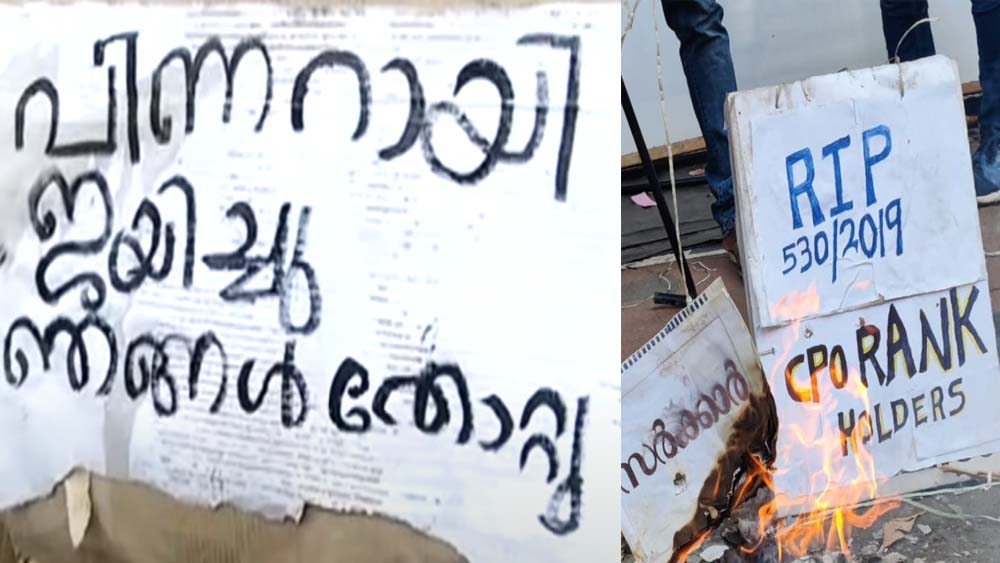 പിണറായി
ജയിച്ചു
ഞങ്ങൾ തോറ്റു
RIP
530/2019
CPO RANK
HOLDERS
സർക്കാർ